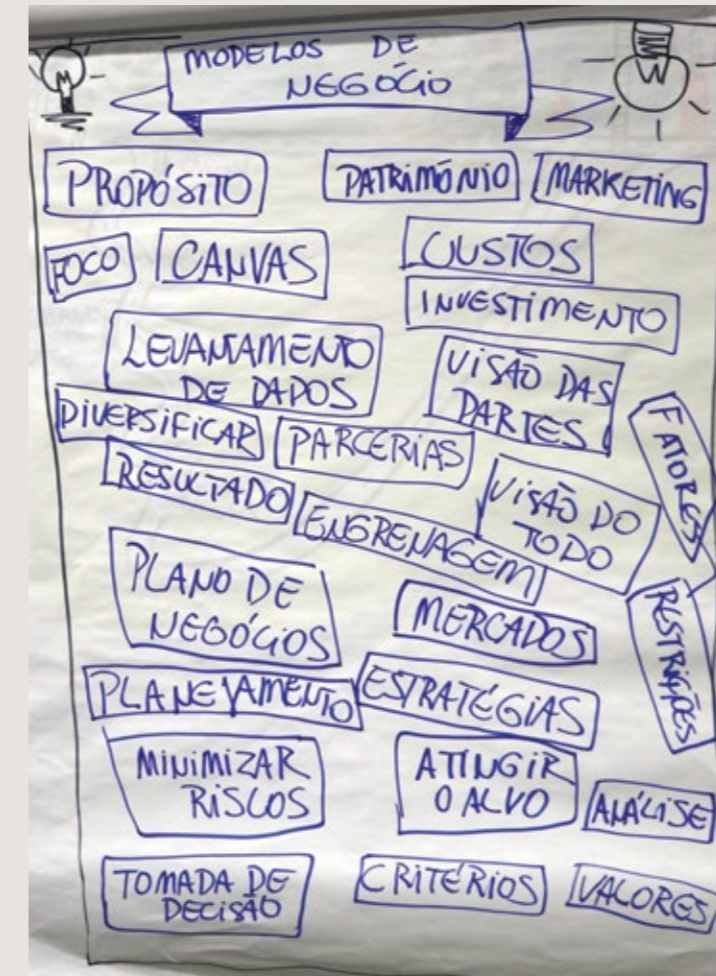 MODELOS DE
NEGÓCIO
PROPÓSITO
PATRIMÓNIO
MARKETING
FOCO
CANVAS
CUSTOS
INVESTIMENTO
LEVANTAMENTO
DE DADOS
VISÃO DAS
PARTES
FATORES
DIVERSIFICAR
PARCERIAS
RESULTADO
ENGRENAGEM
VISÃO DO
TODO
PLANO DE
NEGÓCIOS
MERCADOS
RESTRIÇÕES
PLANEJAMENTO
ESTRATÉGIAS
MINIMIZAR
RISCOS
ATINGIR
O ALVO
ANÁLISE
TOMADA DE
DECISÃO
CRITÉRIOS
VALORES